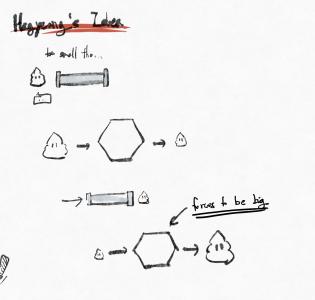 Hagyeong's Idea
to small the...
forces to be big